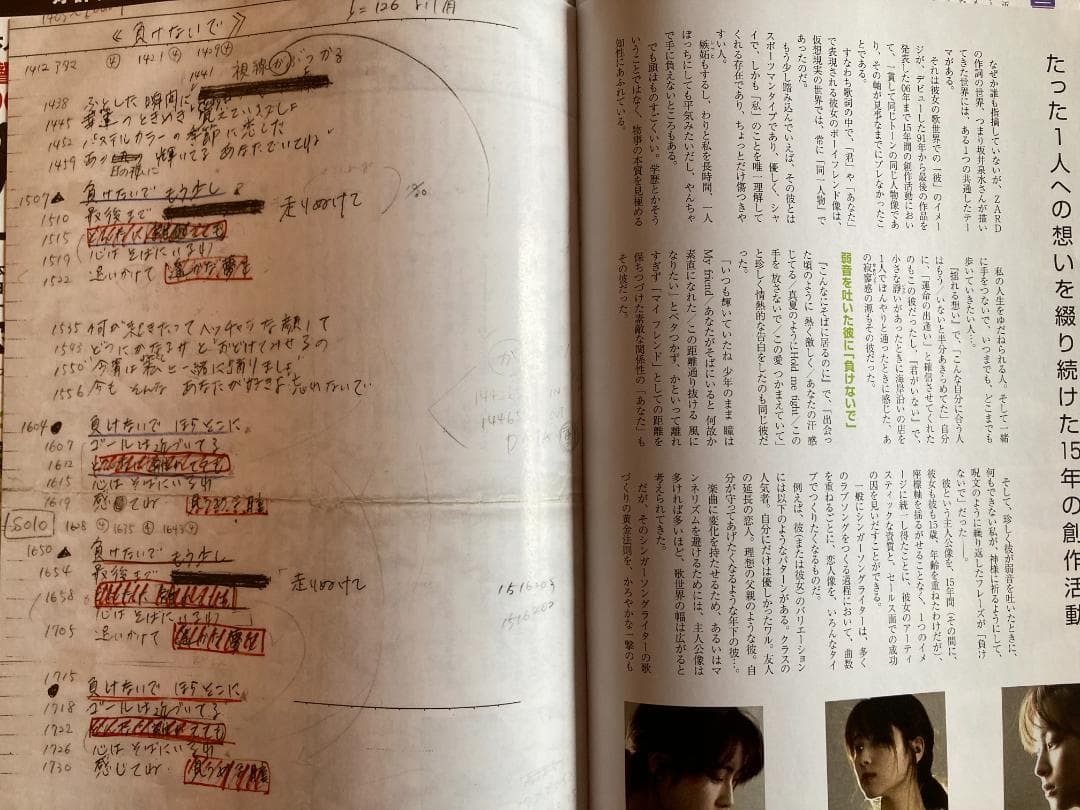 たった1人への想いを綴り続けた15年の創作活動
なぜか誰も指摘していないが、ZARD
の作詞の世界、つまり坂井泉水さんが描い
てきた世界には、ある1つの共通したテー
マがある。
それは彼女の歌世界での「彼」のイメー
ジが、デビューした91年から最後の作品を
発表した06年まで15年間の創作活動におい
て、一貫して同じトーンの同じ人物像であ
り、その軸が見事なまでにブレなかったこ
とである。
すなわち歌詞の中で、「君」や「あなた」
で表現される彼女のボーイフレンド像は、
仮想現実の世界では、常に「同一人物」で
あったのだ。
もう少し踏み込んでいえば、その彼とは
スポーツマンタイプであり、優しく、シャ
イで、しかも「私」のことを唯一理解して
くれる存在であり、ちょっとだけ傷つきや
すい人。
嫉妬もするし、わりと私を長時間、一人
ぼっちにしても平気みたいだし、やんちゃ
で手に負えないところもある。
でも頭はものすごくいい。学歴とかそう
いうことではなく、物事の本質を見極める
知性にあふれている。
私の人生をゆだねられる人。そして一緒
に手をつないで、いつまでも、どこまでも
歩いていきたい人…。
「揺れる想い」で、「こんな自分に合う人
はもう／いないと半分あきらめてた」自分
に、「運命の出逢い」と確信させてくれた
のもこの彼だったし、「君がいない」で、
小さな諍いがあったときに海岸沿いの店を
1人でぼんやりと通ったときに感じた、あ
の寂寥感の源もその彼だった。
弱音を吐いた彼に「負けないで」
「こんなにそばに居るのに」で、「出会っ
た頃のように 熱く激しく／あなたの汗 感
じてる／真夏のようにHold me tight／この
手を 放さないで／この愛 つかまえていて」
と珍しく情熱的な告白をしたのも同じ彼だ
った。
「いつも輝いていたね 少年のまま 瞳は
Mr. friend あなたがそばにいると 何故か
素直になれた／この距離通り抜ける 風に
なりたい」とベタつかず、かといって離れ
すぎず「マイ フレンド」としての距離を
保ちつづけた素敵な関係性の「あなた」も
その彼だった。
そして、珍しく彼が弱音を吐いたときに、
何もできない私が、神様に祈るようにして、
呪文のように繰り返したフレーズが「負け
ないで」だった――。
彼という主人公像を、15年間（その間に、
彼女も彼も15歳、年齢を重ねたわけだが）、
座標軸を揺るがせることなく、1つのイメ
ージに統一し得たことに、彼女のアーティ
スティックな資質と、セールス面での成功
の因を見いだすことができる。
一般にシンガーソングライターは、多く
のラブソングをつくる過程において、曲数
を重ねるごとに、恋人像を、いろんなタイ
プでつくりたくなるものだ。
例えば、彼（または彼女）のバリエーション
には以下のようなパターンがある。クラスの
人気者。自分にだけは優しかったワル。友人
の延長の恋人。理想の父親のような彼。自
分が守ってあげたくなるような年下の彼…。
楽曲に変化を持たせるため、あるいはマ
ンネリズムを避けるためには、主人公像は
多ければ多いほど、歌世界の幅は広がると
考えられてきた。
だが、そのシンガーソングライターの歌
づくりの黄金法則を、かろやかな一撃のも
《負けないで》
1412 ④ 1421 ④ 1429 ④
1441 視線がぶつかる
1438 ふとした瞬間に
1445 幸運のときめき 覚えているでしょ
1452 パステルカラーの季節に恋した
1459 あの日の様に 輝いてる あなたでいてね
1507▲ 負けないで もう少し
1510 最後まで 走りぬけて
1515 どんなに離れてても
1519 心はそばにいるわ
1522 追いかけて 遥かな夢を
1535 何が起きたって ヘッチャラな顔して
1543 どうにかなるサと おどけてみせるの
1550 今宵は私と一緒に踊りましょ
1556 今も そんな あなたが好きよ 忘れないで
1604● 負けないで ほらそこに
1607 ゴールは近づいてる
1612 どんなに離れてても
1615 心はそばにいるわ
1619 感じてね 見つめる瞳
Solo 1628 ④ 1635 ④ 1643 ④
1650▲ 負けないで もう少し
1654 最後まで 走りぬけて
1658 どんなに離れてても
心はそばにいるわ
1705 追いかけて 遥かな夢を
1715● 負けないで ほらそこに
1718 ゴールは近づいてる
1722 どんなに離れてても
1726 心はそばにいるわ
1730 感じてね 見つめる瞳